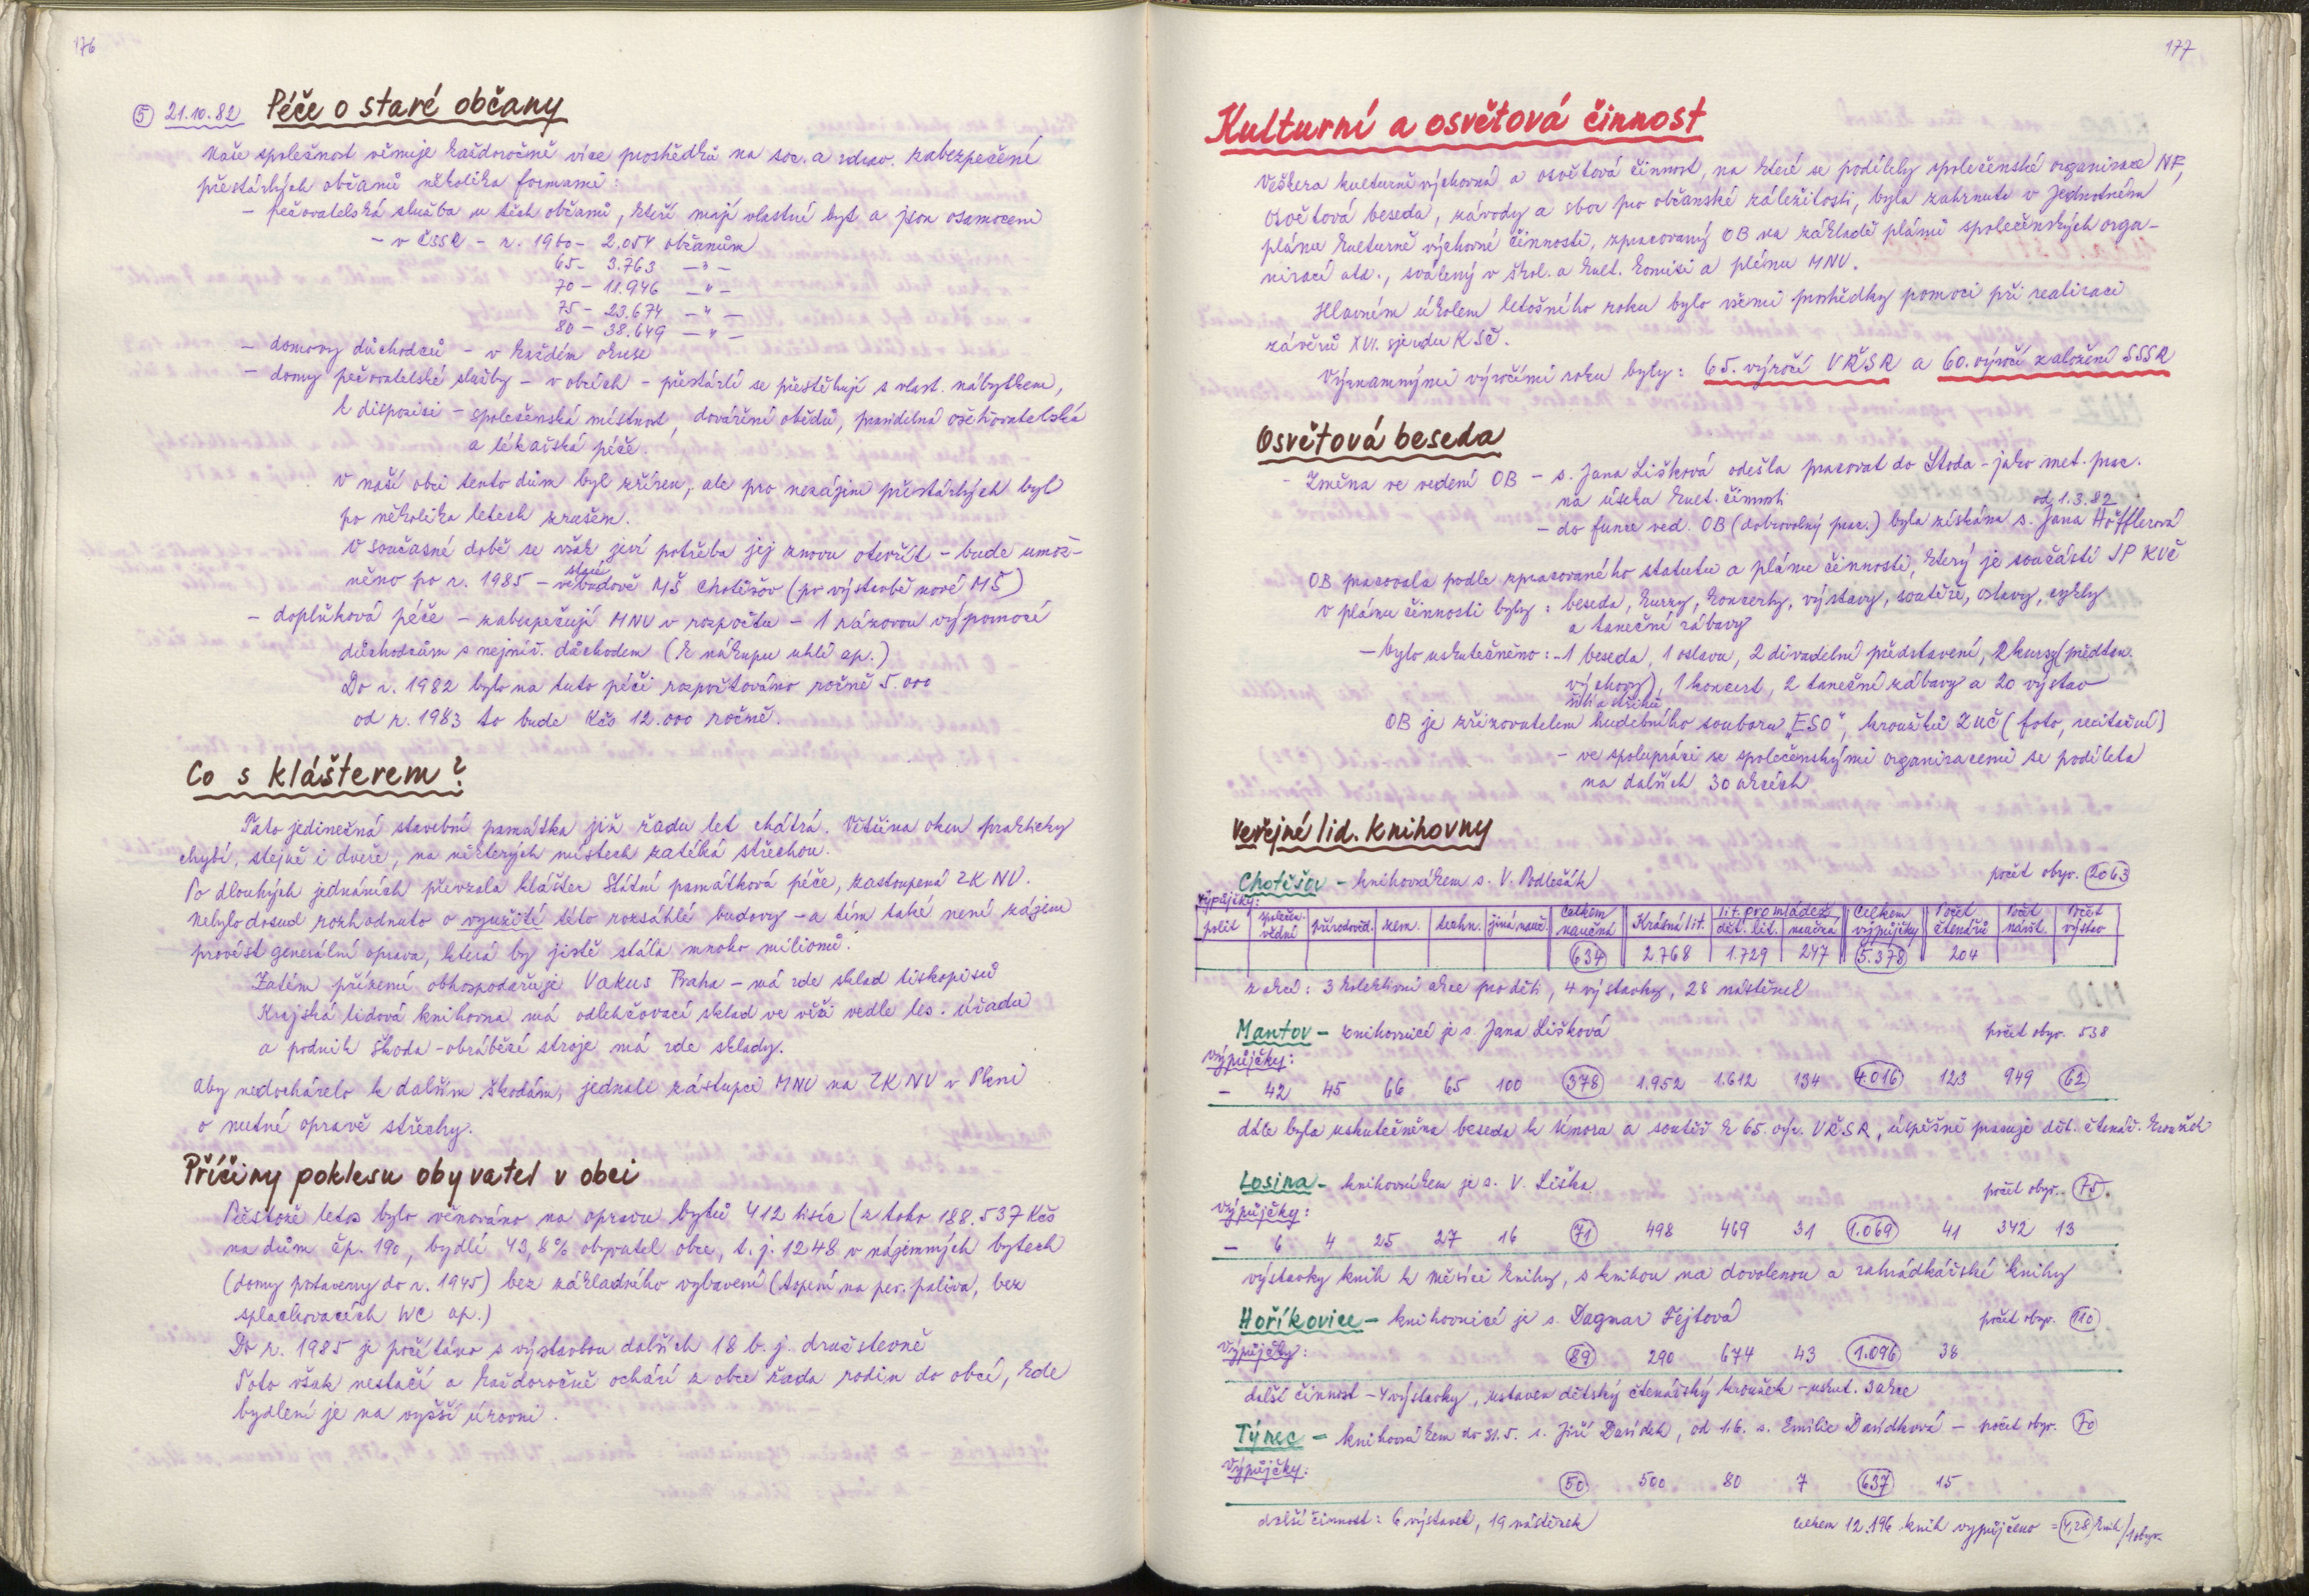 176
⑤ 21.10.82 Péče o staré občany
Naše společnost věnuje každoročně více prostředků na soc. a zdrav. zabezpečení
přestárlých občanů několika formami:
– pečovatelská služba u těch občanů, kteří mají vlastní byt a jsou osamoceni
– v ČSSR – r. 1960 – 2.054 občanům
65 – 3.763 – " –
70 – 11.946 – " –
75 – 23.674 – " –
80 – 38.649 – " –
– domovy důchodců – v každém okrese
– domy pečovatelské služby – v obcích – přestárlí se přestěhují s vlast. nábytkem,
k dispozici – společenská místnost, dovážení obědů, pravidelná ošetřovatelská
a lékařská péče.
V naší obci tento dům byl zřízen, ale pro nezájem přestárlých byl
po několika letech zrušen.
V současné době se však jeví potřeba jej znovu otevřít – bude umož-
něno po r. 1985 – ve staré budově MŠ Chotěšov (po výstavbě nové MŠ)
– doplňková péče – zabezpečují MNV v rozpočtu – 1 rázovou výpomocí
důchodcům s nejniž. důchodem (k nákupu uhlí ap.)
Do r. 1982 bylo na tuto péči rozpočtováno ročně 5.000
od r. 1983 to bude Kčs 12.000 ročně.
Co s klášterem?
Tato jedinečná stavební památka již řadu let chátrá. Většina oken prakticky
chybí, stejně i dveře, na některých místech zatéká střechou.
Po dlouhých jednáních převzala klášter Státní památková péče, zastoupená ZK NV.
Nebylo dosud rozhodnuto o využití této rozsáhlé budovy – a tím také není zájem
provést generální oprava, která by jistě stála mnoho milionů.
Zatím přízemí obhospodařuje Vakus Praha – má zde sklad tiskopisů
Krajská lidová knihovna má odlehčovací sklad ve věži vedle les. úřadu
a podnik Škoda – obráběcí stroje má zde sklady.
Aby nedocházelo k dalším škodám, jednali zástupci MNV na ZK NV v Plzni
o nutné opravě střechy.
Příčiny poklesu obyvatel v obci
Přestože letos bylo věnováno na opravu bytů 412 tisíc (z toho 188.537 Kčs
na dům čp. 190, bydlí 43,8% obyvatel obce, t. j. 1248 v nájemných bytech
(domy postaveny do r. 1945) bez základního vybavení (topení na pev. paliva, bez
splachovacích WC ap.)
Do r. 1985 je počítáno s výstavbou dalších 18 b. j. družstevně
Toto však nestačí a každoročně odchází z obce řada rodin do obcí, kde
bydlení je na vyšší úrovni.
177
Kulturní a osvětová činnost
Veškera kulturně výchovná a osvětová činnost, na které se podílely společenské organizace NF,
Osvětová beseda, závody a sbor pro občanské záležitosti, byla zahrnuta v Jednotném
plánu kulturně výchovné činnosti, zpracovaný OB na základě plánů společenských orga-
nizací atd., sválený v škol. a kult. komisi a plénu MNV.
Hlavním úkolem letošního roku bylo všemi prostředky pomoci při realizaci
závěrů XVI. sjezdu KSČ.
Významnými výročími roku byly: 65. výročí VŘSR a 60. výročí založení SSSR
Osvětová beseda
– Změna ve vedení OB – s. Jana Lišková odešla pracovat do Stoda – jako met. prac.
na úseku kult. činnosti
od 1.3.82
– do funce ved. OB (dobrovolný prac.) byla získána s. Jana Höfflerová
OB pracovala podle zpracovaného statutu a plánu činnosti, který je součástí JP KVČ
V plánu činnosti byly: beseda, kurzy, koncerty, výstavy, soutěže, oslavy, cykly
a taneční zábavy
– bylo uskutečněno: – 1 beseda, 1 oslava, 2 divadelní představení, 2 kurzy (předtan.
výchovy), 1 koncert, 2 taneční zábavy a 20 výstav
šití a střihů
OB je zřizovatelem hudebního souboru „ESO“, kroužků ZUČ (foto, recitační)
– ve spolupráci se společenskými organizacemi se podílela
na dalších 30 akcích
Veřejné lid. knihovny
Chotěšov – knihovníkem s. V. Podlešák počet obyv. 2063
Výpůjčky:
polit | společen. vědní | přírodověd. | zem. | techn. | jiná nauč. | Celkem naučná | Krásná lit. | lit. pro mládež dět. lit. | naučná | Celkem výpůjčky | Počet čtenářů | Počet návšt. | Počet výstav
634 2768 1.729 247 5.378 204
z akcí: 3 kolektivní akce pro děti, 4 výstavky, 28 nástěnek
Mantov – knihovnicí je s. Jana Lišková počet obyv. 538
Výpůjčky:
– 42 45 66 65 100 378 1.952 1.612 134 4.016 123 949 62
dále byla uskutečněna beseda k únoru a soutěž k 65. výr. VŘSR, úspěšně pracuje dět. čtenář. kroužek
Losina – knihovníkem je s. V. Liška počet obyv. 75
Výpůjčky:
– 6 4 25 27 16 71 498 469 31 1.069 41 342 13
výstavky knih k Měsíci knihy, s knihou na dovolenou a zahrádkářské knihy
Hoříkovice – knihovnicí je s. Dagmar Fejtová počet obyv. 110
Výpůjčky:
89 290 674 43 1.096 38
další činnost – 4 výstavky, ustaven dětský čtenářský kroužek – uskut. 3 akce
Týnec – knihovníkem do 31.5. s. Jiří Davídek, od 1.6. s. Emilie Davídková – počet obyv. 70
Výpůjčky:
50 500 80 7 637 15
další činnost: 6 výstavek, 19 nástěnek
Celkem 12.196 knih vypůjčeno = 4,28 knih/1 obyv.